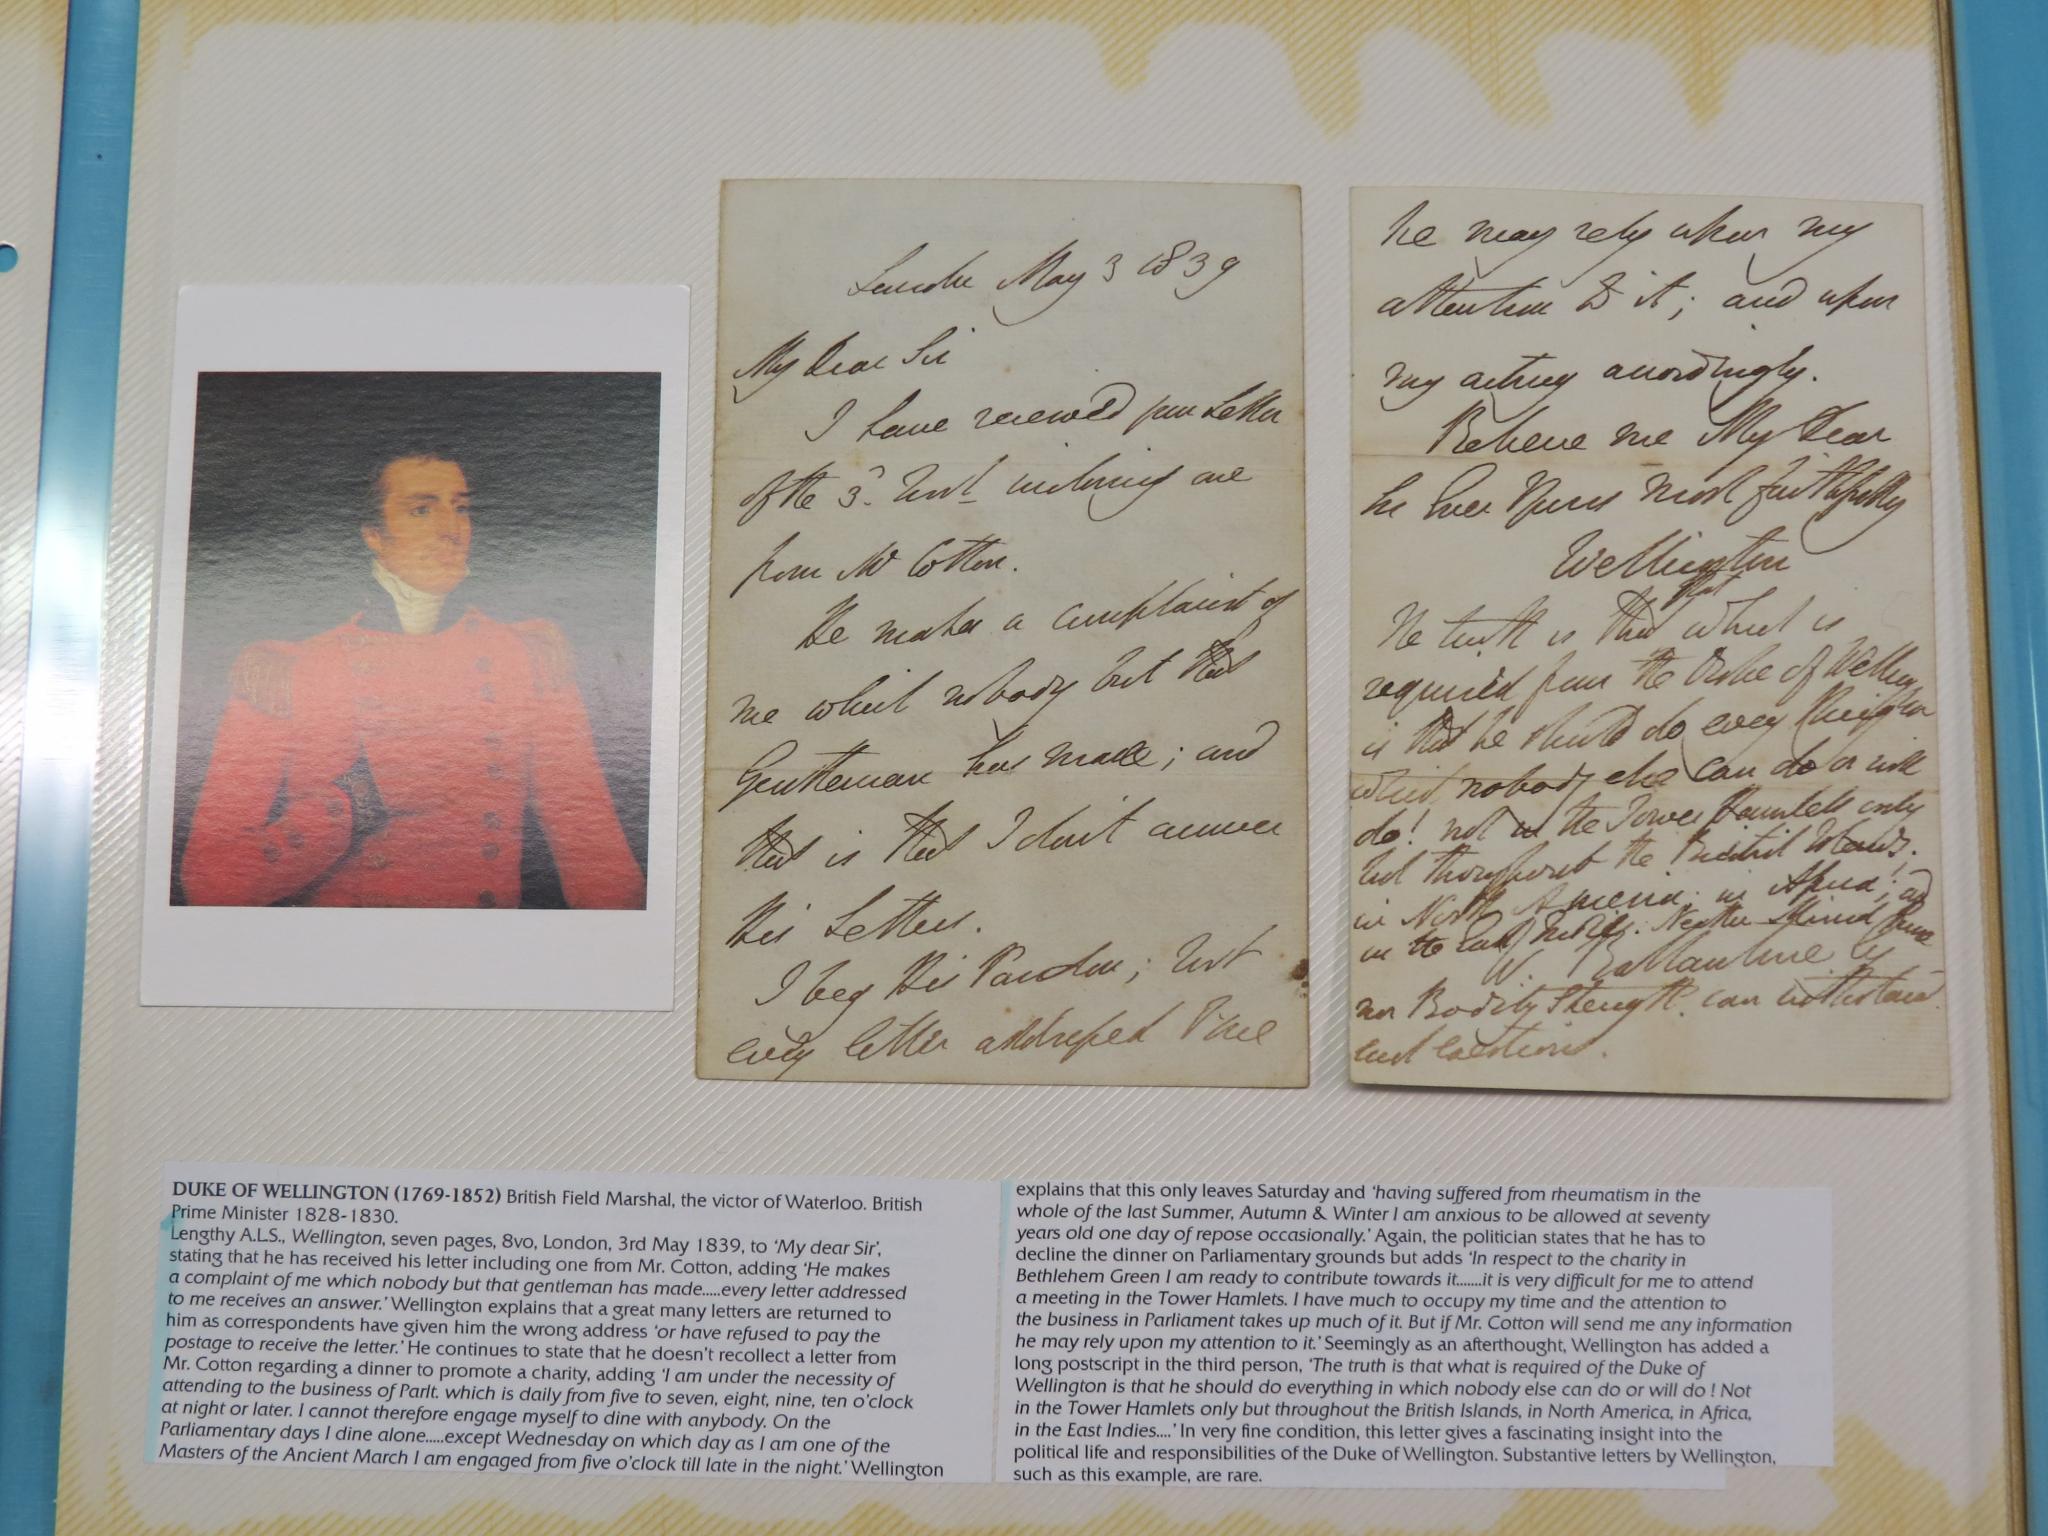 London May 3 1839
My Dear Sir
I have received your Letter
of the 3d Inst. inclosing one
from Mr Cotton.
He makes a complaint of
me which nobody but that
Gentleman has made; and
that is that I dont answer
His Letters.
I beg His Pardon; but
every letter addressed to me
he may rely upon my
attention to it; and upon
my acting accordingly.
Believe me My Dear
Sir Ever Yours most faithfully
Wellington
The truth is that what is
required from the Duke of Wellington
is that he should do every thing
which nobody else can do or will
do! not in the Tower Hamlets only
but throughout the British Islands;
in North America; in Africa; and
in the East Indies. Neither Mind
W
nor Bodily Strength can withstand
such exertions.
DUKE OF WELLINGTON (1769-1852) British Field Marshal, the victor of Waterloo. British
Prime Minister 1828-1830.
Lengthy A.L.S., Wellington, seven pages, 8vo, London, 3rd May 1839, to 'My dear Sir',
stating that he has received his letter including one from Mr. Cotton, adding 'He makes
a complaint of me which nobody but that gentleman has made.....every letter addressed
to me receives an answer.' Wellington explains that a great many letters are returned to
him as correspondents have given him the wrong address 'or have refused to pay the
postage to receive the letter.' He continues to state that he doesn't recollect a letter from
Mr. Cotton regarding a dinner to promote a charity, adding 'I am under the necessity of
attending to the business of Parlt. which is daily from five to seven, eight, nine, ten o'clock
at night or later. I cannot therefore engage myself to dine with anybody. On the
Parliamentary days I dine alone.....except Wednesday on which day as I am one of the
Masters of the Ancient March I am engaged from five o'clock till late in the night.' Wellington
explains that this only leaves Saturday and 'having suffered from rheumatism in the
whole of the last Summer, Autumn & Winter I am anxious to be allowed at seventy
years old one day of repose occasionally.' Again, the politician states that he has to
decline the dinner on Parliamentary grounds but adds 'In respect to the charity in
Bethlehem Green I am ready to contribute towards it.......it is very difficult for me to attend
a meeting in the Tower Hamlets. I have much to occupy my time and the attention to
the business in Parliament takes up much of it. But if Mr. Cotton will send me any information
he may rely upon my attention to it.' Seemingly as an afterthought, Wellington has added a
long postscript in the third person, 'The truth is that what is required of the Duke of
Wellington is that he should do everything in which nobody else can do or will do ! Not
in the Tower Hamlets only but throughout the British Islands, in North America, in Africa,
in the East Indies....' In very fine condition, this letter gives a fascinating insight into the
political life and responsibilities of the Duke of Wellington. Substantive letters by Wellington,
such as this example, are rare.